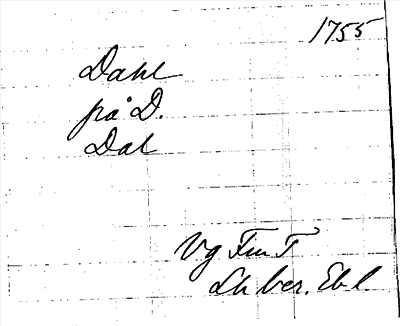 1755
Dahl
på D.
Dal
Vg Fru T
Lh ber. Ebl.